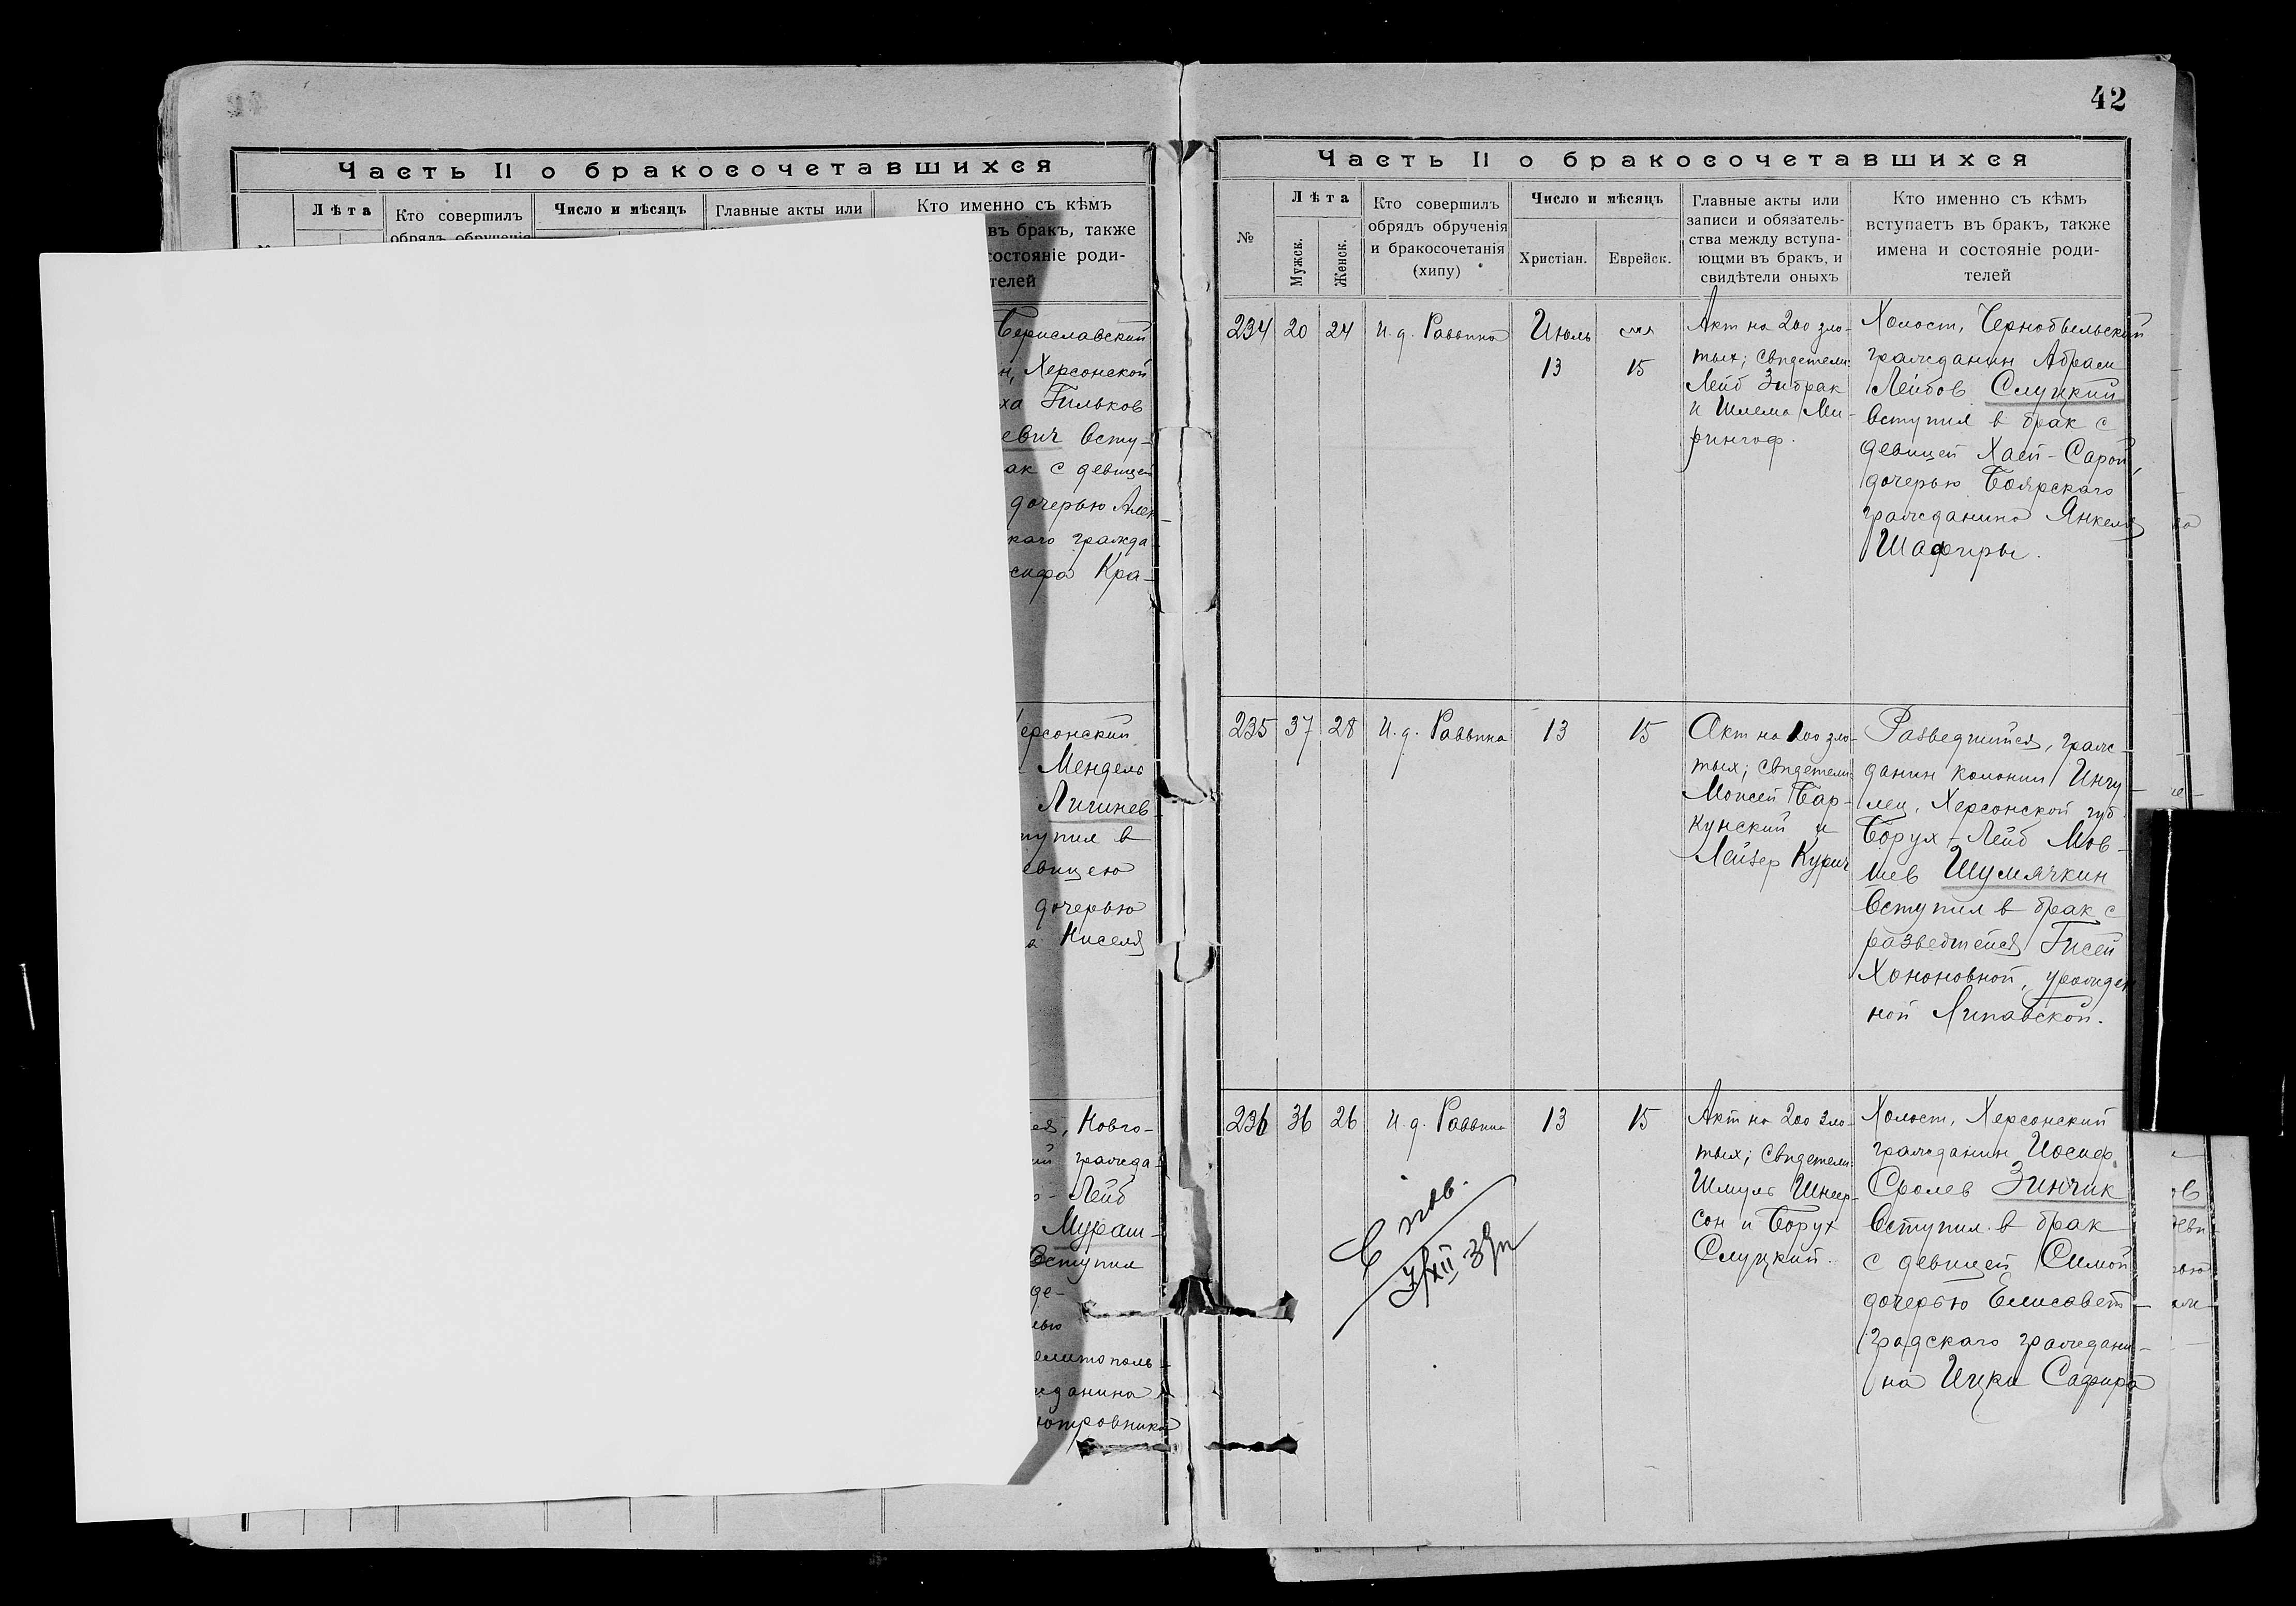 Часть II о бракосочетавшихся
Лѣта
Кто совершилъ
Число и мѣсяцъ
Главные акты или
Кто именно съ кѣмъ
обрядъ обрученія
въ бракъ, также
состояніе роди-
телей
Бериславский
н, Херсонской
ха Гильков
евич всту-
ак с девицей
дочерью Алек
каго гражда
сифа Кра-
ерсонский
Мендель
Лигинев
ступил в
евицею
дочерью
а Киселя
ся, Новго-
ий гражда-
Лейб
Мураш-
Вступил
де-
елитополь-
жданина
42
Часть II о бракосочетавшихся
№
Лѣта
Мужск.
Женск.
Кто совершилъ
обрядъ обрученія
и бракосочетанія
(хипу)
Число и мѣсяцъ
Христіан.
Еврейск.
Главные акты или
записи и обязатель-
ства между вступа-
ющми въ бракъ, и
свидѣтели оныхъ
Кто именно съ кѣмъ
вступаетъ въ бракъ, также
имена и состояніе роди-
телей
234 20 24 И. д. Раввина Июль
13 15
Акт на 200 зло-
тых; свидетели:
Лейб Зибрак
и Шлема Ми-
рингоф.
Холост, Чернобыльский
гражданин Абрам
Лейбов Слуцкий
вступил в брак с
девицей Хаей-Сарой,
дочерью Боярскаго
гражданина Янкеля
Шафиры.
235 37 28 И. д. Раввина 13 15
Акт на 100 зло-
тых; свидетели:
Моисей Бар-
кунский и
Лейзер Курич
Разведшийся, граж-
данин колонии Ингу-
лец, Херсонской губ.
Борух-Лейб Мов-
шев Шумячкин
Вступил в брак с
разведшейся Гисей
Хононовной, урожден
ной Липавской.
236 36 26 И. д. Раввина 13 15
Акт на 200 зло-
тых; свидетели:
Шмуль Шнеер-
сон и Борух
Слуцкий.
Холост, Херсонский
гражданин Иосиф
Сролев Зинчик
Вступил в брак
с девицей Симой
дочерью Елисавет-
градскаго граждани-
на Ицки Сафира